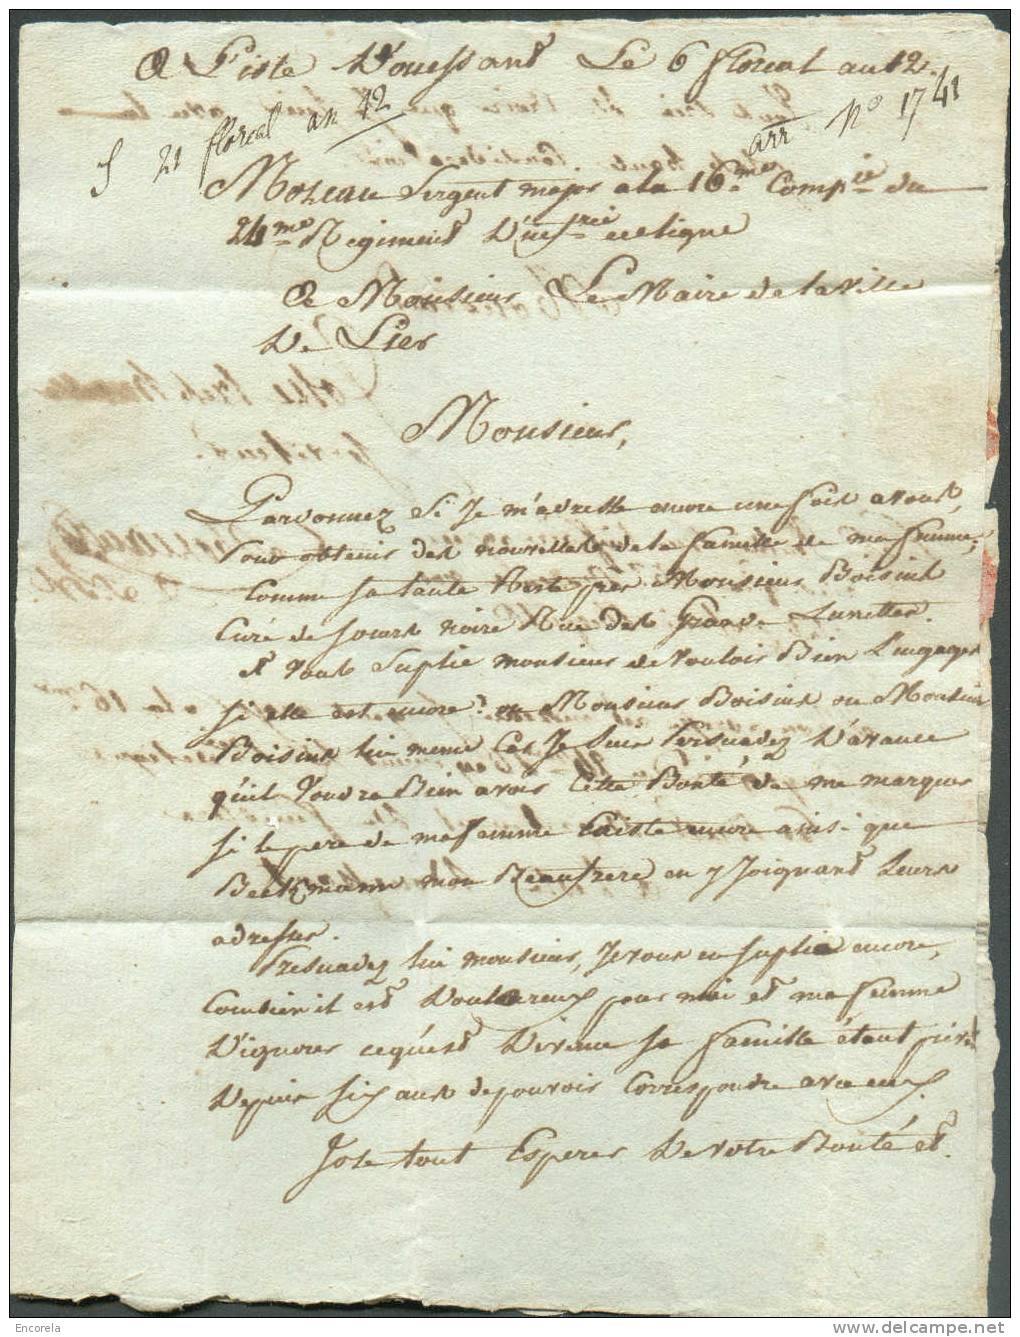 A L'isle D'ouessant Le 6 floreal an 12.
21 floreal an 12
arr N° 1741
Mozeau Sergent major a la 16me Compie du
24me Regiment D'infrie de Ligne
A Monsieur Le Maire de la Ville
De Lier
Monsieur,
Pardonnez Si Je m'adresse encore une fois a vous,
pour obtenir des nouvelles de la famille de ma femme,
Comme sa tante Reste pres Monsieur Boisint
Curé de Soeurs noire Rue des Grande Lunettes.
et vous Suplie monsieur de vouloir Bien L'engager
si elle est encore? ou Monsieur Boisint ou Monsieur
Boisint lui meme Car Je suis Persuadez D'avance
qu'il Voudra Bien avoir Cette Bonté, de me marquer
si le pere de ma femme Existe encore ainsi que
Beckmann mon Beaufrere en y Joignant Leurs
adresses.
Persuadez lui monsieur, Je vous en suplie encore,
Combien il est Douloureux pour moi et ma femme
D'ignorer ce qu'est Divenu sa famille étant privé
Depuis six ans de pouvoir Correspondre avec eux
Jose tout Esperer De votre Bonté et
Encorela
http://www.delcampe.net